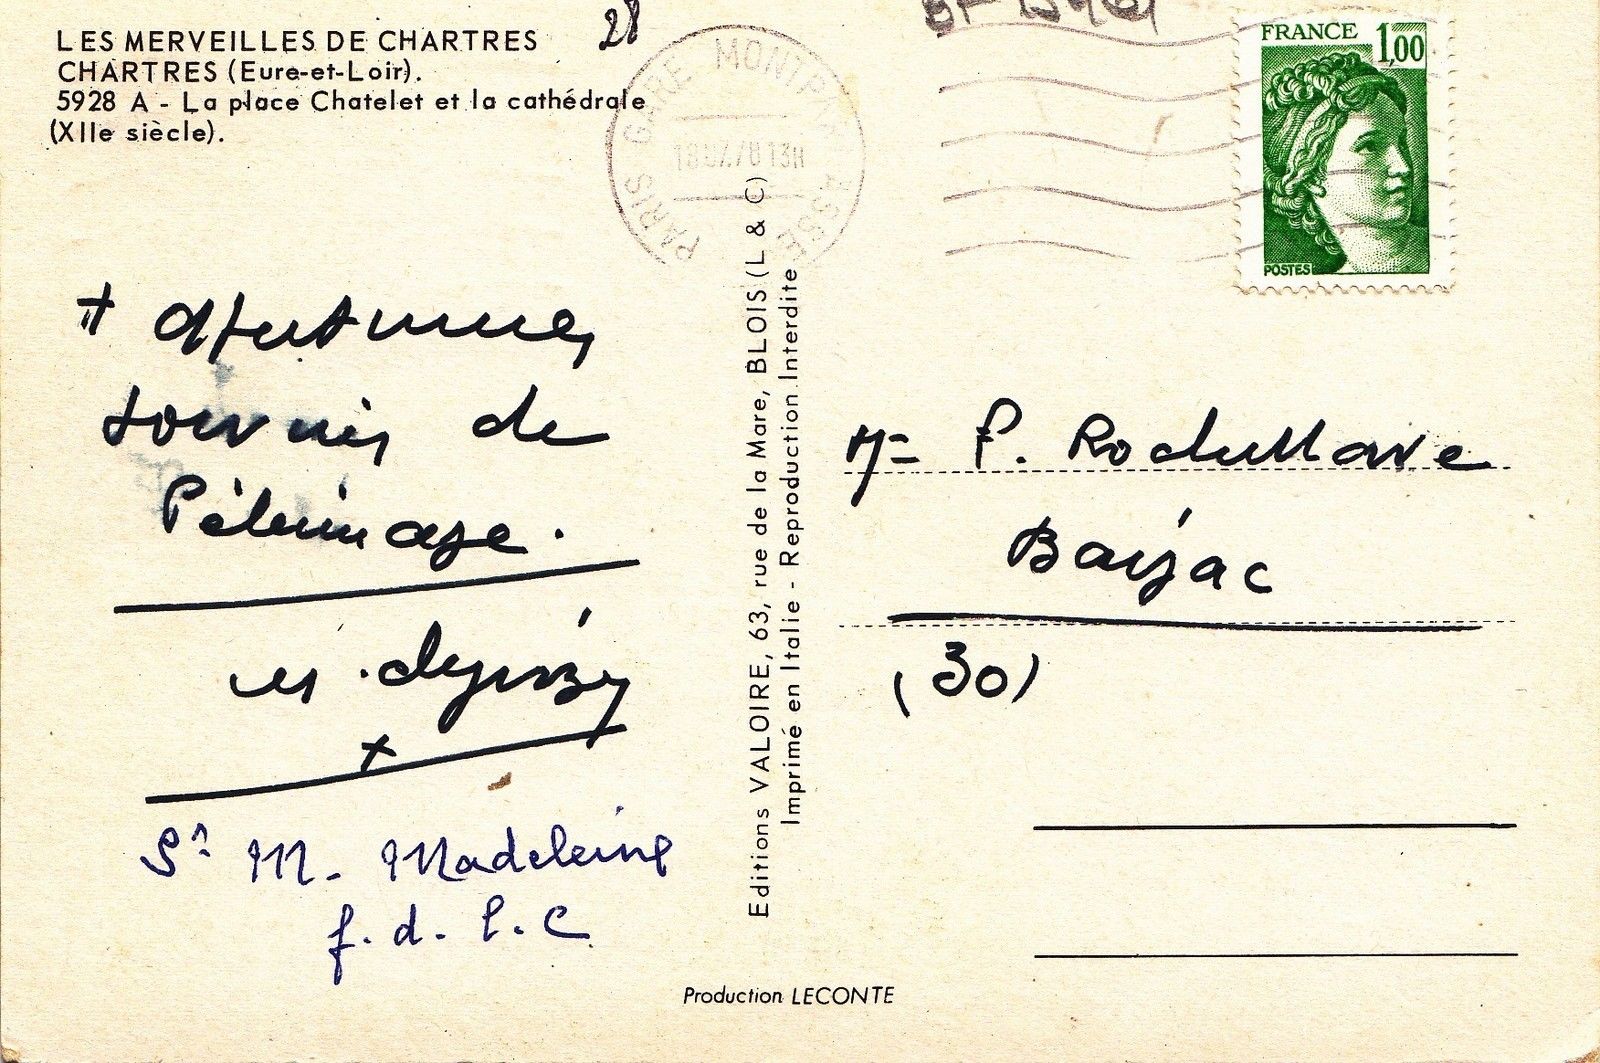 LES MERVEILLES DE CHARTRES
CHARTRES (Eure-et-Loir).
5928 A - La place Chatelet et la cathédrale
(XIIe siècle).
28
PARIS GARE MONTPARNASSE
13H
FRANCE 1,00
POSTES
+ Affectueux
souvenir de
Pèlerinage.
+
Sr M. Madeleine
f. d. l. C
Editions VALOIRE, 63, rue de la Mare, BLOIS (L & C)
Imprimé en Italie - Reproduction Interdite
P. Rochellave
Barjac
(30)
Production LECONTE